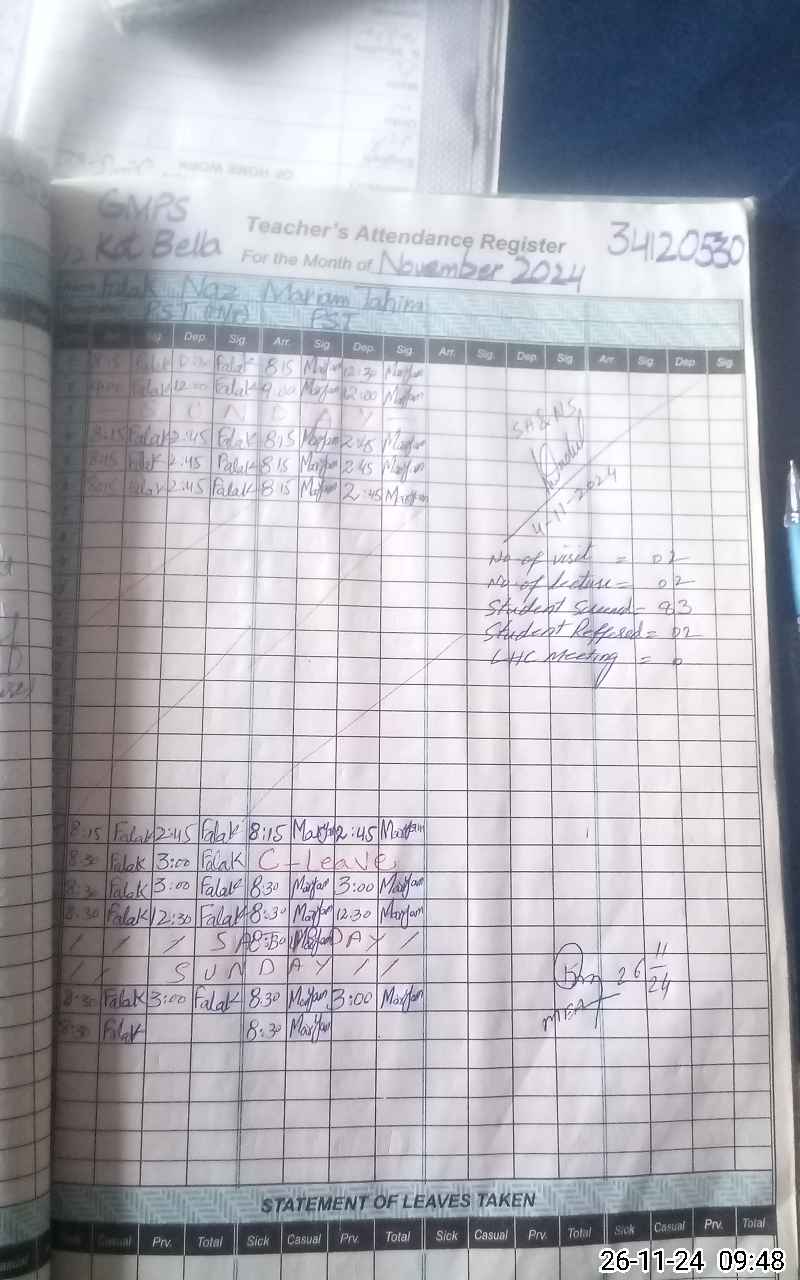 GMPS
Kot Bella
Teacher's Attendance Register
34120530
For the Month of November 2024
Falak Naz Mariam Tahira
PST PST
Dep. Sig. Arr. Sig. Dep. Sig. Arr. Sig. Dep. Sig. Arr Sig. Dep Sig.
8:15 Falak Falak 8:15 Maryam 12:30 Maryam
Falak 12:00 Falak 9:00 Maryam 12:00 Maryam
S U N D A Y
8:15 Falak 2:45 Falak 8:15 Maryam 2:45 Maryam
8:15 Falak 2:45 Falak 8:15 Maryam 2:45 Maryam
8:15 Falak 2:45 Falak 8:15 Maryam 2:45 Maryam
SH&NS
4-11-2024
No of visit = 02
No of lecture = 02
Student = 83
Student Reffered = 02
Meeting = 0
8:15 Falak 2:45 Falak 8:15 Maryam 2:45 Maryam
8:30 Falak 3:00 Falak C-Leave
8:30 Falak 3:00 Falak 8:30 Maryam 3:00 Maryam
8:30 Falak 12:30 Falak 8:30 Maryam 12:30 Maryam
/ / / S A 8:30 DAY /
/ / S U N D A Y / /
8:30 Falak 3:00 Falak 8:30 Maryam 3:00 Maryam
8:30 Falak 8:30 Maryam
26 11/24
MEA
STATEMENT OF LEAVES TAKEN
Casual Prv. Total Sick Casual Prv. Total Sick Casual Prv. Total Sick Casual Prv. Total
26-11-24 09:48